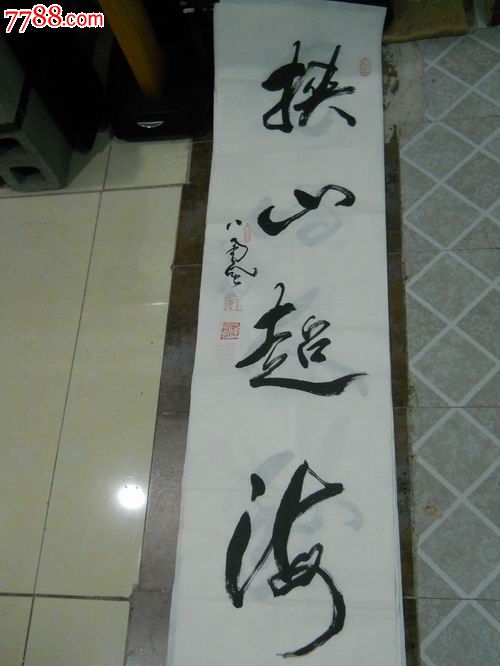 7788.com
挾山超海